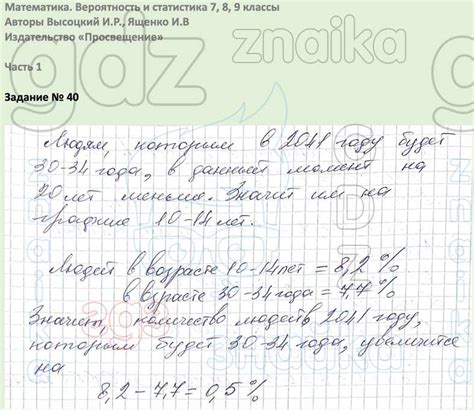 Математика. Вероятность и статистика 7, 8, 9 классы
Авторы Высоцкий И.Р., Ященко И.В
Издательство «Просвещение»
Часть 1
Задание № 40
gdz znaika
Людям, которым в 2041 году будет
30-34 года, в данный момент на
20 лет меньше. Значит им на
графике 10-14 лет.
Людей в возрасте 10-14 лет = 8,2 %
в возрасте 30-34 года = 7,7 %
Значит, количество людей в 2041 году,
которым будет 30-34 года, увеличится
на
8,2 - 7,7 = 0,5 %